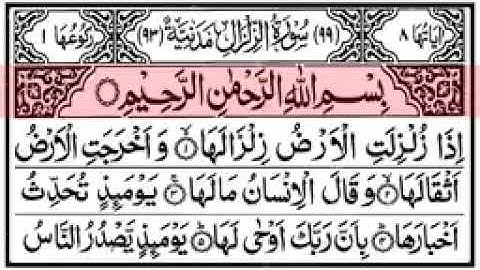 اٰيَاتُهَا ٨ (٩٩) سُوْرَةُ الزِّلْزَالِ مَدَنِيَّةٌ (٩٣) رُكُوْعُهَا ١
بِسْمِ اللّٰهِ الرَّحْمٰنِ الرَّحِيْمِ
اِذَا زُلْزِلَتِ الْاَرْضُ زِلْزَالَهَا ۙ‏﴿۱﴾ وَ اَخْرَجَتِ الْاَرْضُ
اَثْقَالَهَا ۙ‏﴿۲﴾ وَ قَالَ الْاِنْسَانُ مَا لَهَا ۚ‏﴿۳﴾ يَوْمَئِذٍ تُحَدِّثُ
اَخْبَارَهَا ۙ‏﴿۴﴾ بِاَنَّ رَبَّكَ اَوْحٰى لَهَا ؕ‏﴿۵﴾ يَوْمَئِذٍ يَّصْدُرُ النَّاسُ